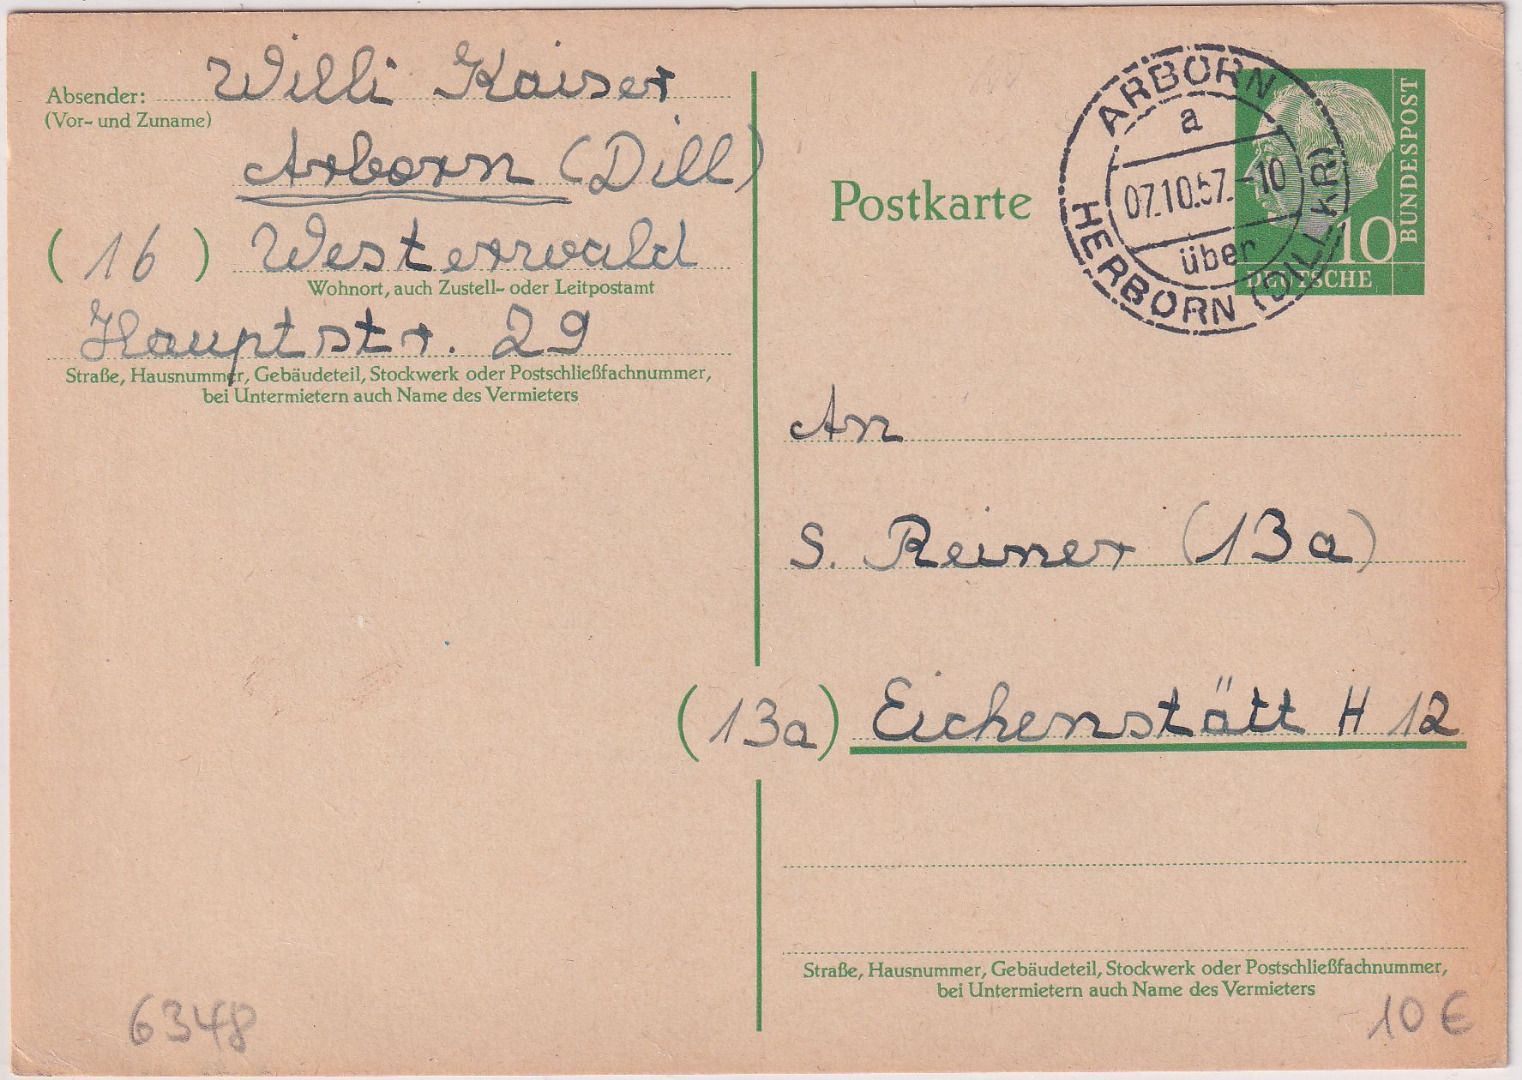 Absender: Willi Kaiser
(Vor- und Zuname)
Arborn (Dill)
(16) Westerwald
Wohnort, auch Zustell- oder Leitpostamt
Hauptstr. 29
Straße, Hausnummer, Gebäudeteil, Stockwerk oder Postschließfachnummer,
bei Untermietern auch Name des Vermieters
Postkarte
ARBORN
a
07.10.57.-10
über
HERBORN (DILLKR)
10
DEUTSCHE
BUNDESPOST
An
S. Reiner (13a)
(13a) Eichenstätt H 12
Straße, Hausnummer, Gebäudeteil, Stockwerk oder Postschließfachnummer,
bei Untermietern auch Name des Vermieters
6348
10 €